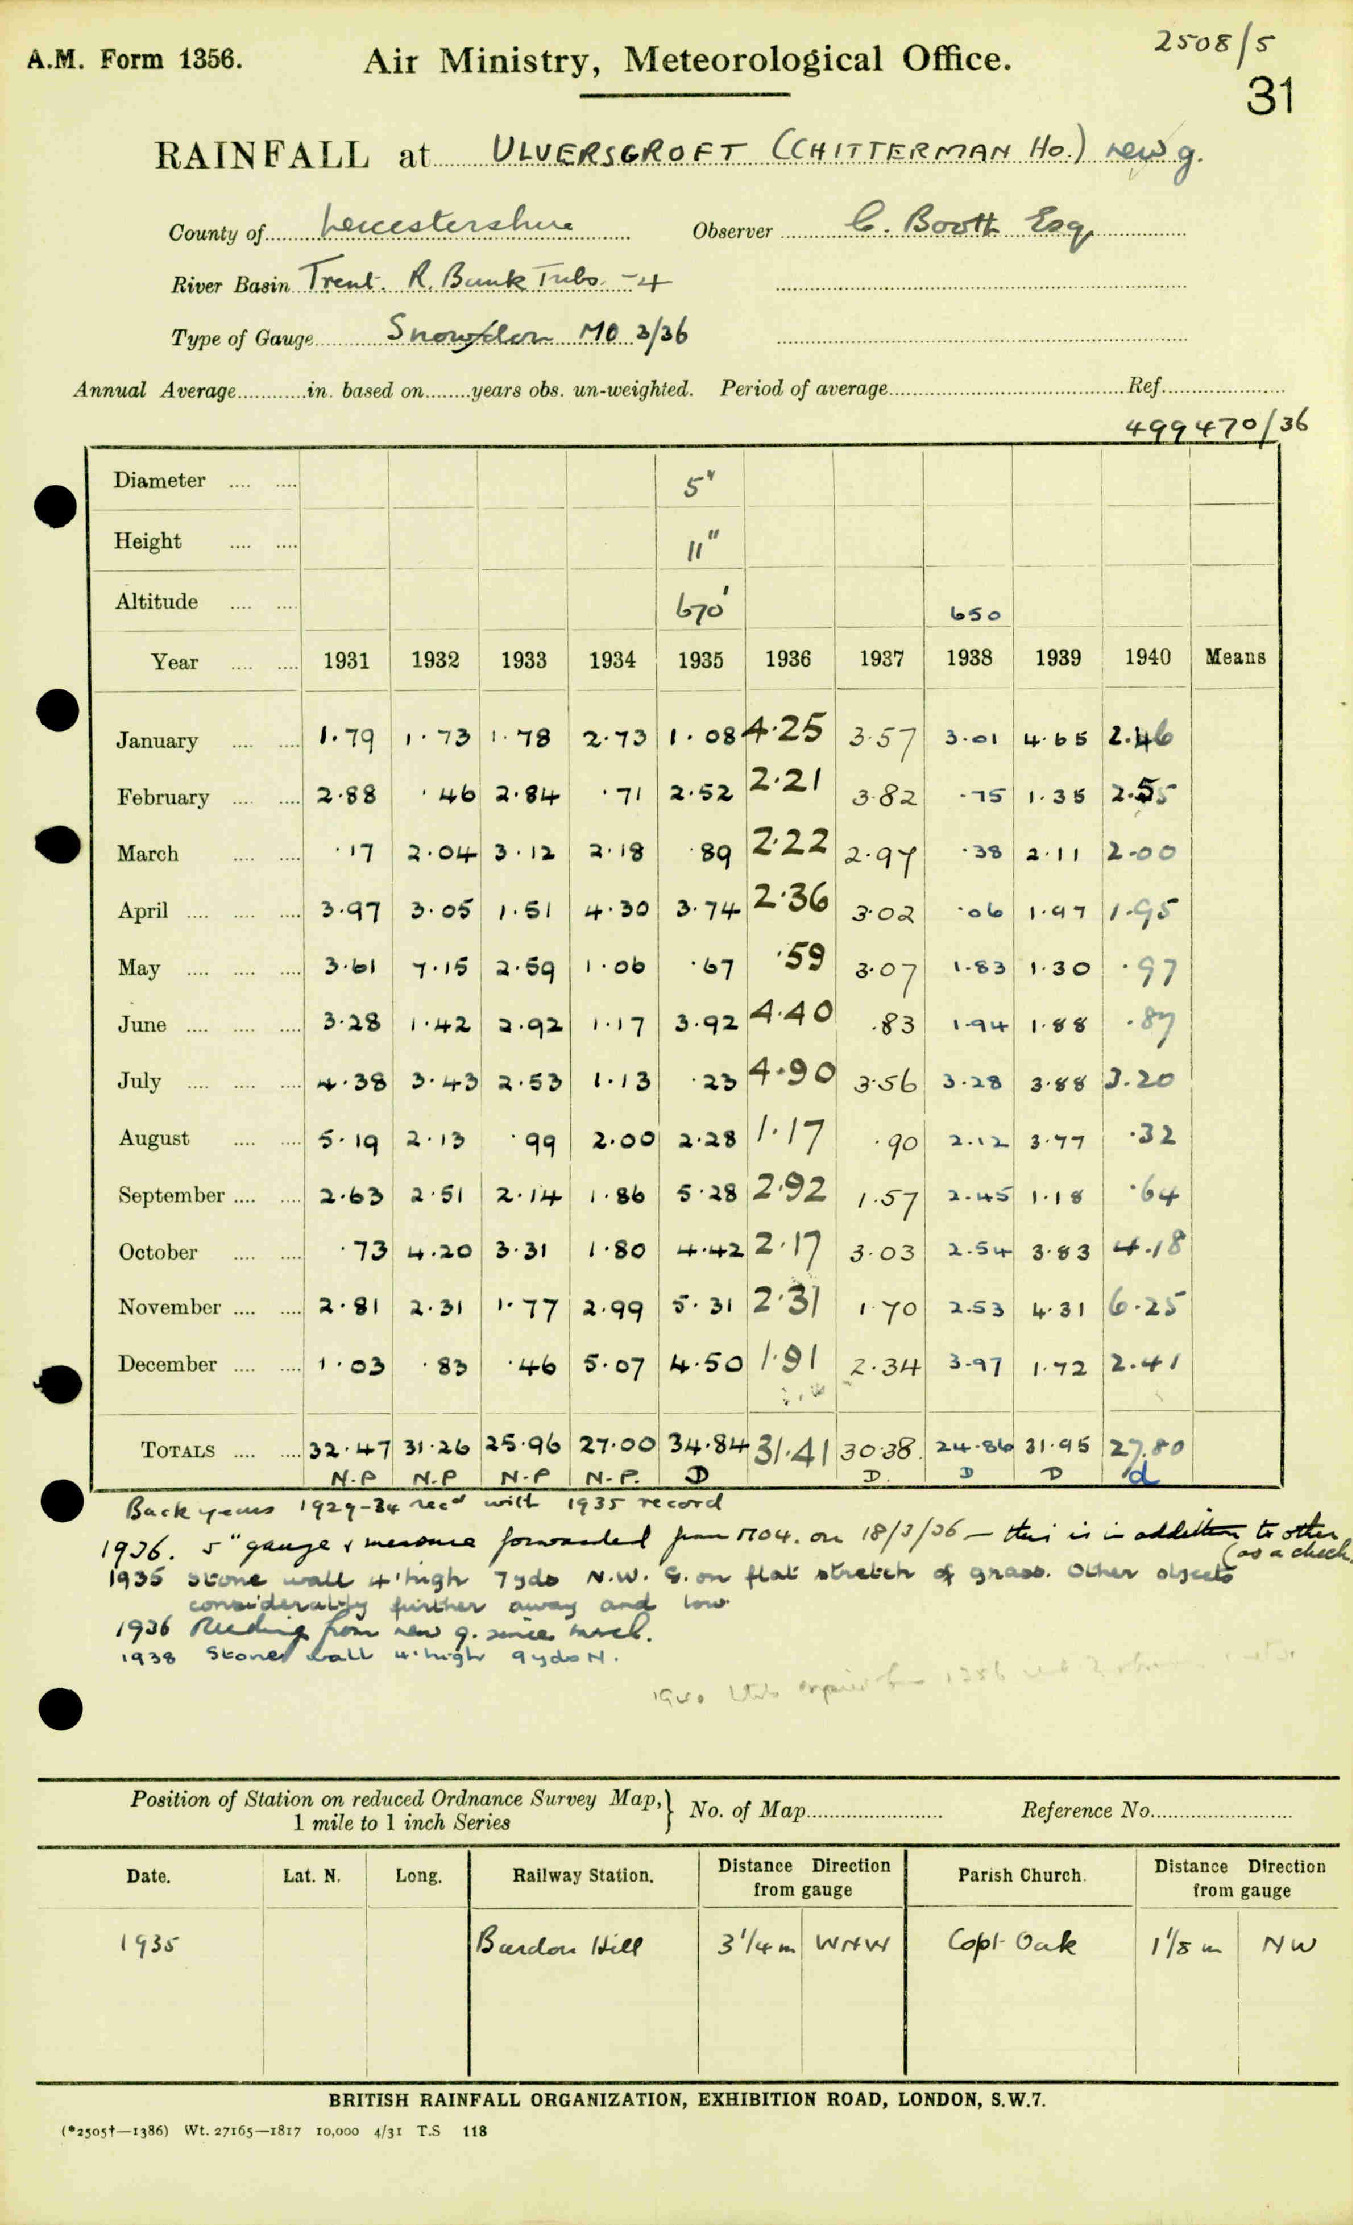 2508/5
A.M. Form 1356. Air Ministry, Meteorological Office.
31
RAINFALL at ULVERSGROFT (CHITTERMAN Ho.) new g.
County of Leicestershire Observer C. Booth Esq.
River Basin Trent. R. Bank Tribs. -4
Type of Gauge Snowdon MO 3/36
Annual Average in. based on years obs. un-weighted. Period of average Ref.
499470/36
Diameter 5"
Height 11"
Altitude 670' 650
Year 1931 1932 1933 1934 1935 1936 1937 1938 1939 1940 Means
January 1.79 1.73 1.78 2.73 1.08 4.25 3.57 3.01 4.65 2.46
February 2.88 .46 2.84 .71 2.52 2.21 3.82 .75 1.35 2.55
March .17 2.04 3.12 2.18 .89 2.22 2.97 .38 2.11 2.00
April 3.97 3.05 1.51 4.30 3.74 2.36 3.02 .06 1.97 1.95
May 3.61 7.15 2.59 1.06 .67 .59 3.07 1.83 1.30 .97
June 3.28 1.42 2.92 1.17 3.92 4.40 .83 1.94 1.88 .87
July 4.38 3.43 2.53 1.13 .23 4.90 3.56 3.28 3.88 3.20
August 5.19 2.13 .99 2.00 2.28 1.17 .90 2.12 3.77 .32
September 2.63 2.51 2.14 1.86 5.28 2.92 1.57 2.45 1.18 .64
October .73 4.20 3.31 1.80 4.42 2.17 3.03 2.54 3.83 4.18
November 2.81 2.31 1.77 2.99 5.31 2.31 1.70 2.53 4.31 6.25
December 1.03 .83 .46 5.07 4.50 1.91 2.34 3.97 1.72 2.41
TOTALS 32.47 31.26 25.96 27.00 34.84 31.41 30.38. 24.86 31.95 27.80
N.P N.P N.P N.P. D D. D D d
Back years 1929-34 recd with 1935 record
1936. 5" gauge & measure forwarded from MO4. on 18/3/36 — this is in addition to other
(as a check
1935 Stone wall 4' high 7 yds N.W. G. on flat stretch of grass. Other objects
considerably further away and low
1936 Reading from new g. since March.
1938 Stone wall 4' high 9 yds N.
1940
Position of Station on reduced Ordnance Survey Map, } No. of Map Reference No.
1 mile to 1 inch Series
Date. Lat. N. Long. Railway Station. Distance Direction from gauge Parish Church. Distance Direction from gauge
1935 Bardon Hill 3 1/4 m WNW Copt Oak 1 1/8 m NW
BRITISH RAINFALL ORGANIZATION, EXHIBITION ROAD, LONDON, S.W.7.
(*2505†—1386) Wt. 27165—1817 10,000 4/31 T.S 118